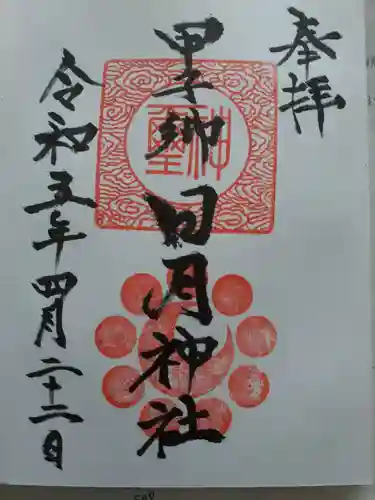 奉拝
甲子郷日月神社
神璽
令和五年四月二十二日